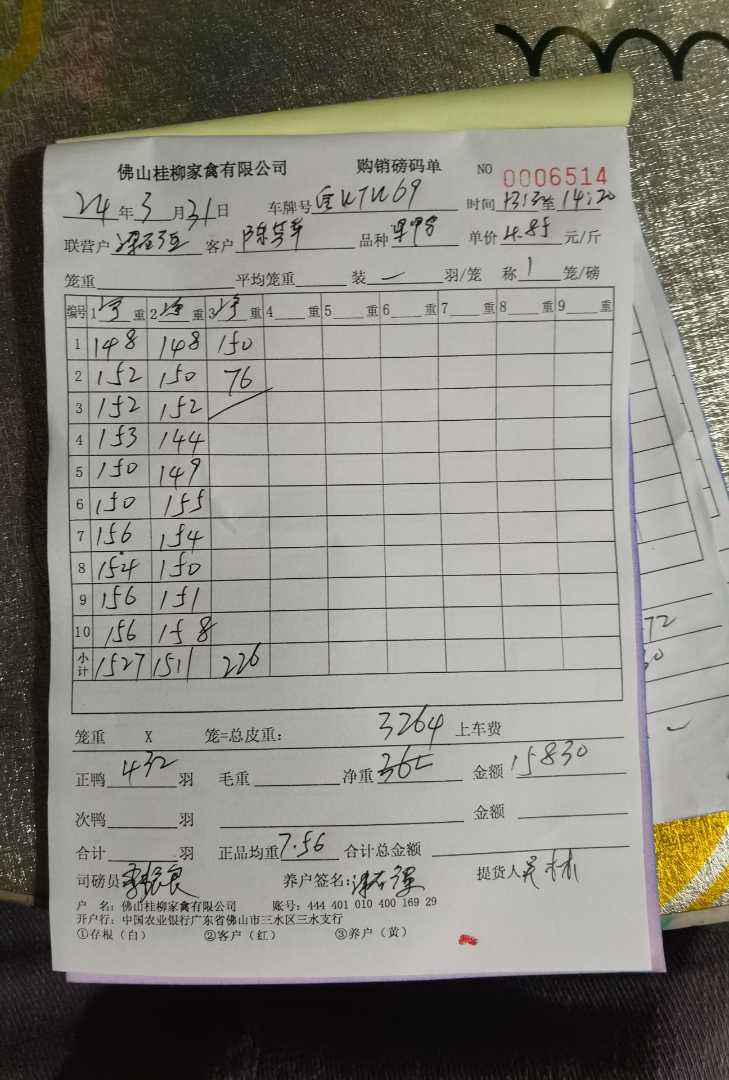 佛山桂柳家禽有限公司 购销磅码单 NO 0006514
24年3月31日 车牌号 时间 至14:20
联营户 客户 品种 单价4.85元/斤
笼重 平均笼重 装一羽/笼 称1笼/磅
编号 1净重 2净重 3净重 4重 5重 6重 7重 8重 9重
1 148 148 150
2 152 150 76
3 152 152
4 153 144
5 150 149
6 150 155
7 156 154
8 154 150
9 156 151
10 156 158
小计 1527 1511 226
笼重 X 笼=总皮重: 3264 上车费
正鸭432羽 毛重 净重 金额15830
次鸭 羽 金额
合计 羽 正品均重7.56 合计总金额
司磅员 养户签名: 提货人
户 名: 佛山桂柳家禽有限公司 账号: 444 401 010 400 169 29
开户行: 中国农业银行广东省佛山市三水区三水支行
①存根（白） ②客户（红） ③养户（黄）
72